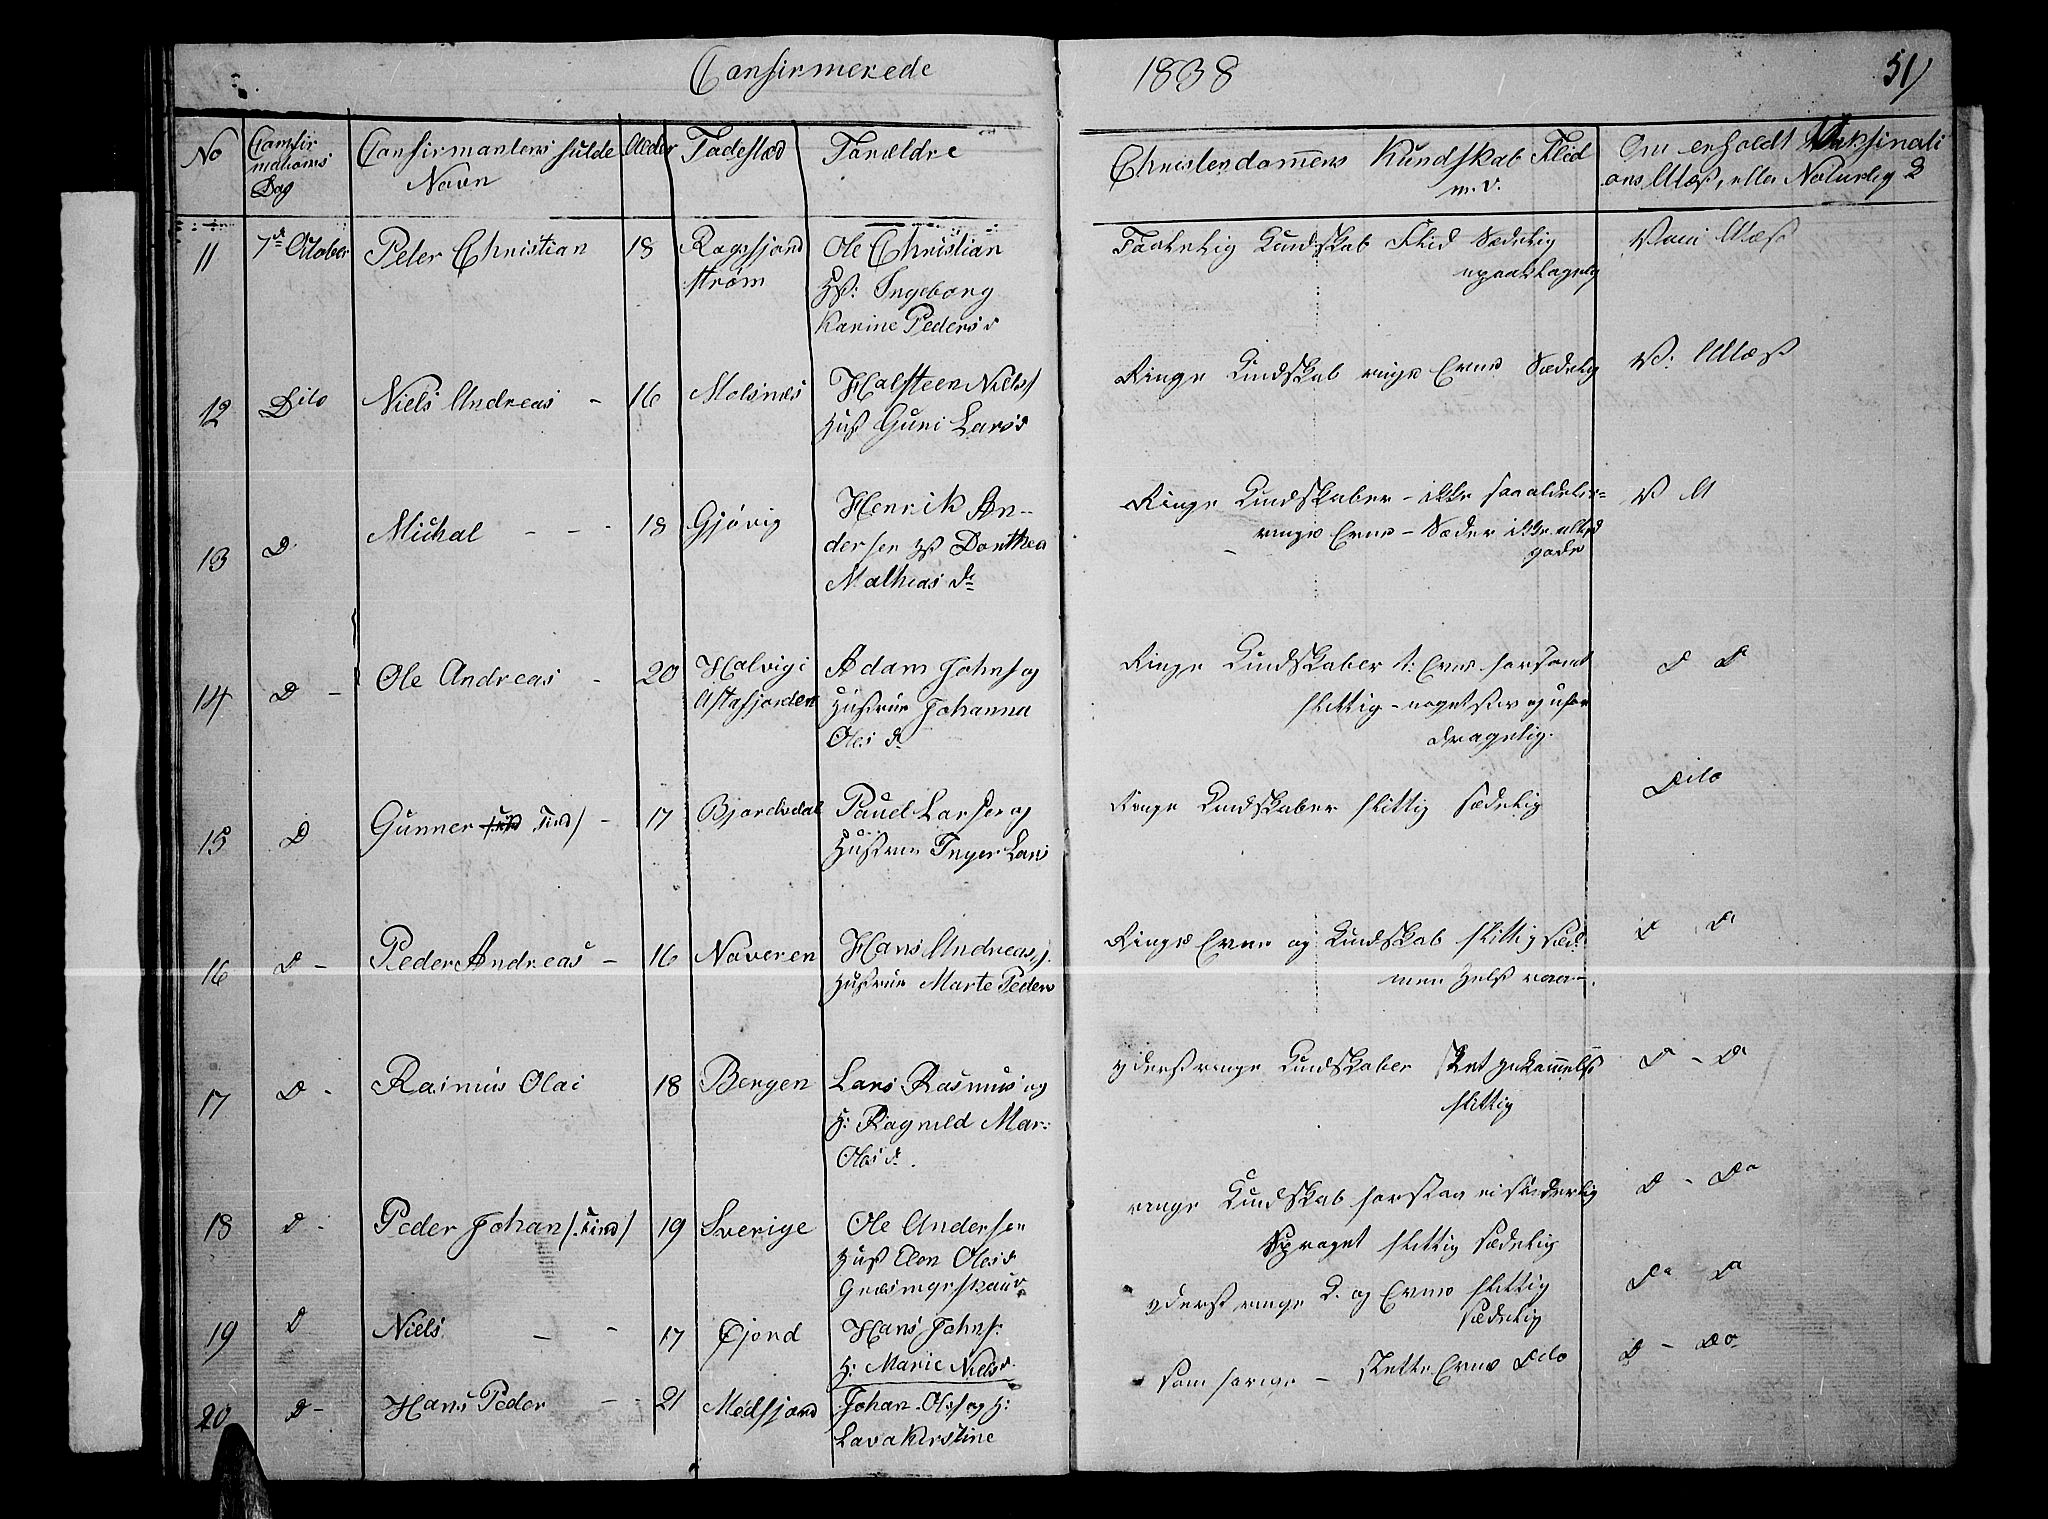 Confirmerede
1838
51
No
Confir
mations
Dag
Confirmantens fulde
Navn
Alder
Fødestæd
Forældre
Christendommens Kundskab Flid
m. v.
Om erholdt Vaksinati
ons Attæst, eller Naturlig
11
7de October
Peter Christian
18
Rogsfjord
strøm
Ole Christian
Hst: Ingeborg
Karine Pedersd
Taalelig Kundskab Flid Sædelig
upaaklagelig
Vaci Attæst
12
Dito
Niels Andreas -
16
Molsnæs
Halsteen Nielss
Hust Guni Larsd
Ringe Kundskab ringe Evne Sædelig
V: Attæst
13
D
Michal - -
18
Gjøvig
Henrik An-
dersen Hst Dorthea
Mathias dr
Ringe Kundskaber - ikke saa aldeles
ringe Evne - Sæder ikke altid
gode
V A
14
D -
Ole Andreas -
20
Halvig i
Astafjorden
Adam Johns og
Hustrue Johanna
Oles dr
Ringe Kundskaber t: Evne forsømt
flittig - noget og ufor
dragelig.
D D
15
D
Gunner Find) -
17
Bjordsdal
Pauel Larsen og
Hustrue Inger Lars
Ringe Kundskaber flittig sædelig
Dito
16
D -
Peder Andreas -
16
Noveren
Hans Andreas s.
Hustrue Marte Peders
Ringe Evne og Kundskab flittig sæd:
men
D D
17
D -
Rasmus Olai
18
Bergen
Lars Rasmus og
H: Ragnild Mar:
Oles d.
yderst ringe Kundskaber slet
flittig
D - D
18
D -
Peder Johan (Find)
19
Sverige
Ole Andersen
Hust Elen Olesd
ringe Kundskab forstaar ei synderlig
Sproget flittig sædelig
D - Do
19
D
Niels - -
17
Øjord
Hans Johns.
H: Marie Nielsd.
yderst ringe K. og Evne flittig
sædelig
Do D
20
D -
Hans Peder - -
21
Medfjord
Johan Ols og H:
Lava Kirstine
som forige - slette Evne Dito
D - Do